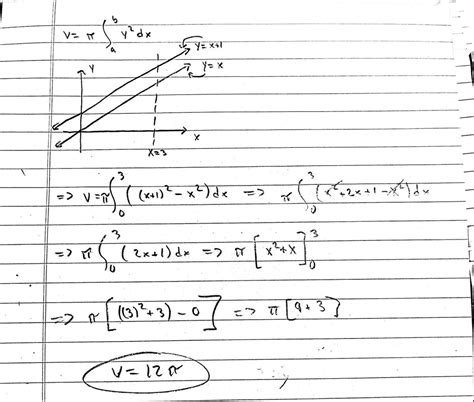 V = π ∫ₐᵇ y² dx
y = x+1
y
y = x
x
x=3
=> V = π ∫₀³ ((x+1)² - x²) dx => π ∫₀³ (x² + 2x + 1 - x²) dx
=> π ∫₀³ (2x+1) dx => π [x² + x]₀³
=> π [((3)² + 3) - 0] => π [9 + 3]
V = 12π